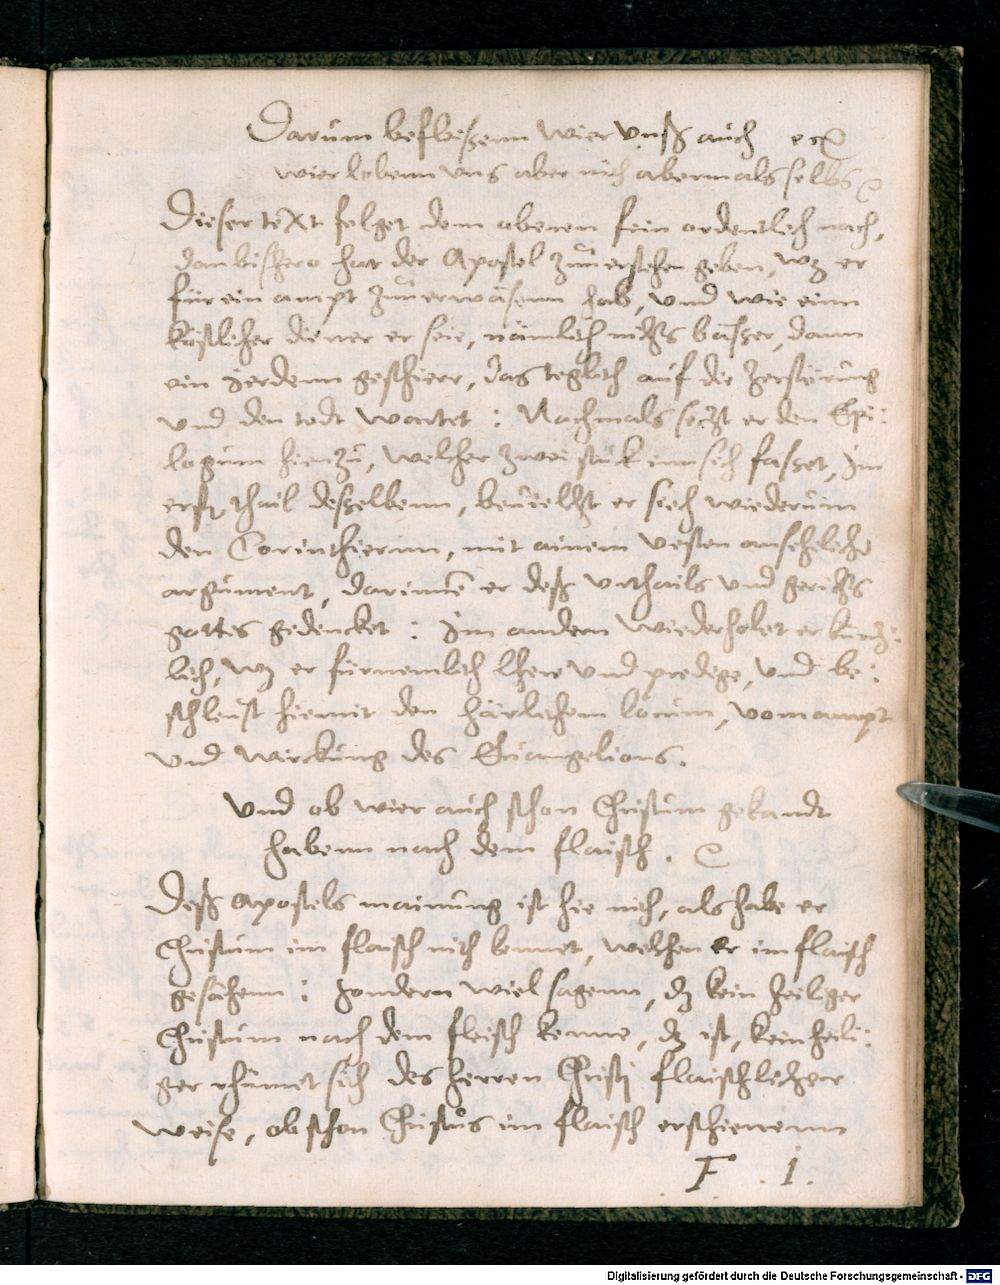 Darum befleissenn wier vnß auch etc.
wier lobenn vns aber nich abermals selbs
Dieser text folget dem obenen fein ordentlich nach,
dan bishero hat der Apostel zuuerstehen geben, wz er
für ein ampt zuuerwäsenn hab, vnd wie einn
köstlicher diener er seie, nämlich nichts bässer, dann
ein jerdenn geschierr, das teglich auf die zerstörung
vnd den todt wartet: Nachmals setzt er den Epi:
logum hienzu, welcher zwei stuk inn sich fasset, Im
erst thail desselbenn, beuielht er sich wiederum
den Corinthiernn, mit ainem vesten ansehliche
argument, darinnen er deß vrthails vnd gerichts
gottes gedencket: Im andern wiederholet er kurtz:
lich, wz er fürnemlich lhere vnd predige, vnd be:
schleust hiemit den härlichem locum, vom ampt
vnd wirckung des Euangelions.
Vnd ob wier auch schon Christum gekandt
habenn nach dem flaisch.
Deß Apostels mainung ist hie nich, als habe er
Christum im flaisch nich kennet, welchen er im flaisch
gesähenn: sondern wiel sagenn, dz kein heiliger
Christum nach dem fleisch kenne, dz ist, kein heili:
ger rhümet sich des herren Christj flaischlicher
weise, ob schon Christus im flaisch erschienenn
F. 1.
Digitalisierung gefördert durch die Deutsche Forschungsgemeinschaft - DFG